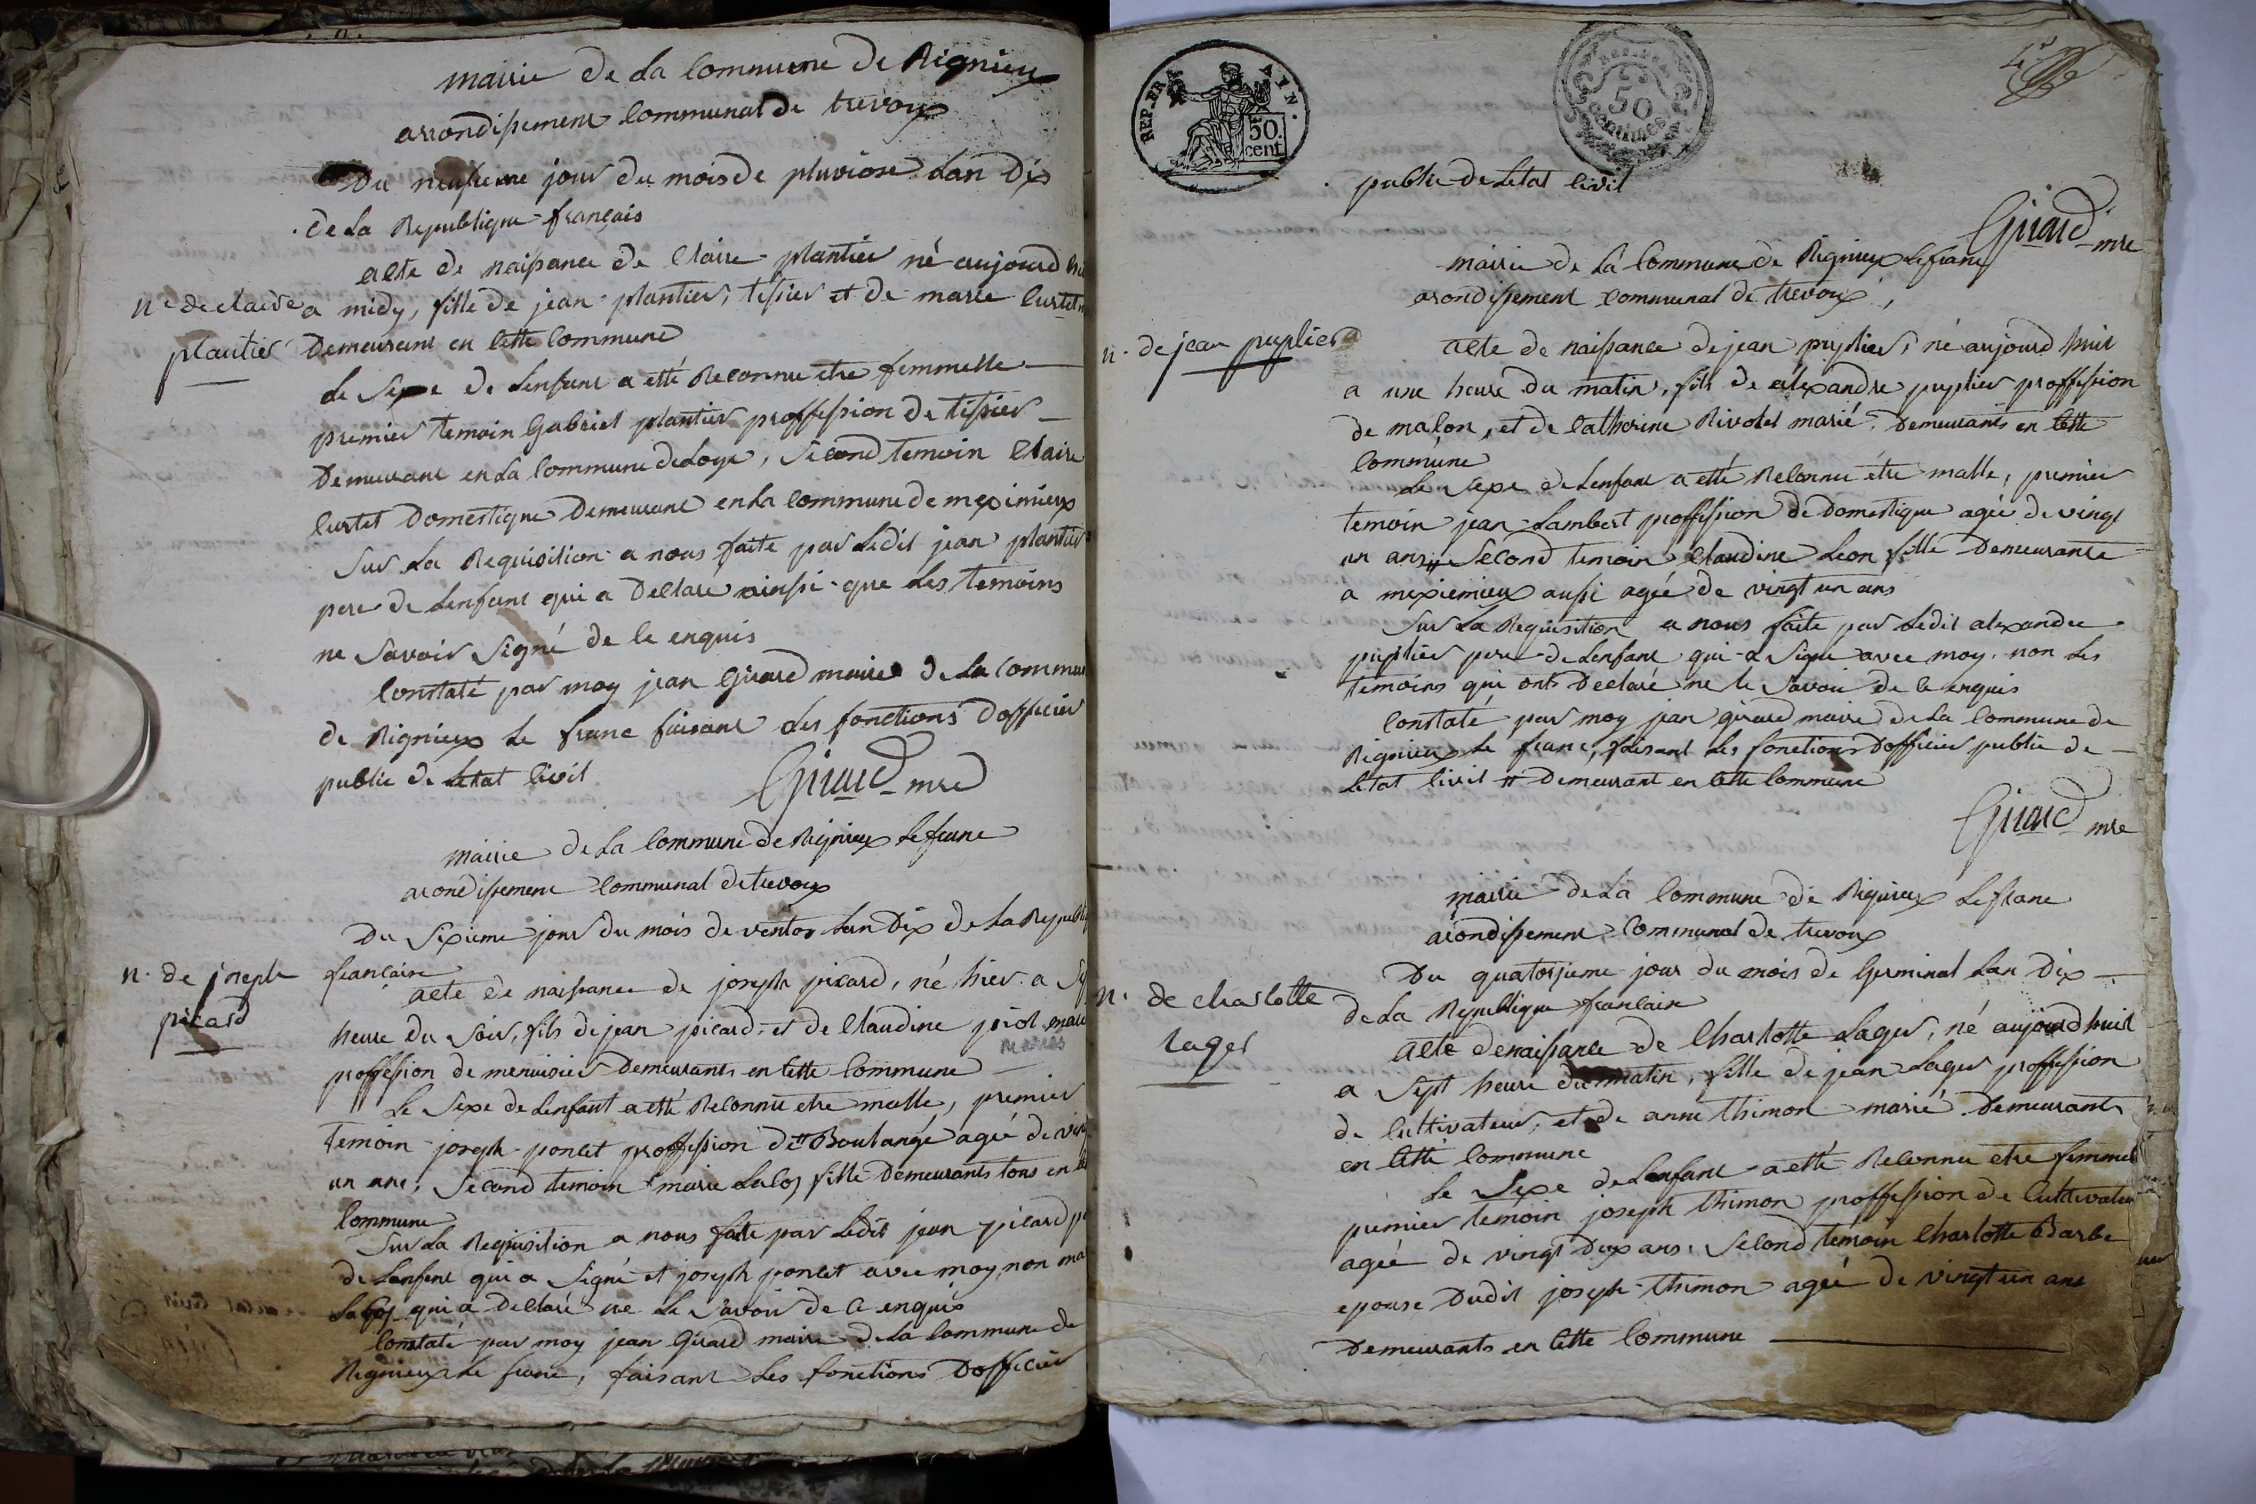 mairie de La Commune de Rignieux
arrondissement Communal de trevoux
Du neufieme jour du mois de pluviose Lan Dix
de La Republique français
acte de naissance de Claire plantier né aujourd hui
Nce de claire
plantier
a midy, fille de jean plantier, tissier et de marie Curtet
Demeurant en Cette Commune
Le Sexe de Lenfant a etté Reconnu etre femmelle
premier temoin Gabriel plantier proffession de tissier
Demeurant en La Commune de Loye, Second temoin Claire
Curtet Domestique Demeurant en La Commune de meximieux
Sur La Requisition a nous faite par Ledit jean plantier
pere de Lenfant qui a Declaré ainssi que Les temoins
ne Savoir Signé de Ce enquis
Constaté par moy jean Girard maire de La Commune
de Rignieux Le franc faisant Les fonctions Dofficier
public de Letat Civil
Girard mre
mairie de La Commune de Rignieux Le franc
arondissement Communal de trevoux
Du Sixieme jour du mois de ventos Lan Dix de La Republiq
francaise
n. de joseph
picard
acte de naissance de joseph picard, né hier a
heure du Soir, fils de jean picard et de Claudine
mariés
proffession de menuisier Demeurants en Cette Commune
Le Sexe de Lenfant a etté Reconnu etre malle, premier
temoin joseph poncet proffession de Boulangé agée de vingt
un ans, Second temoin marie fille Demeurants tous en
Commune
Sur La Requisition a nous faite par Ledit jean picard
de Lenfent qui a Signé et joseph poncet avec moy, non
qui a Declaré ne Le Savoir de Ce enquis
Constaté par moy jean Girard maire de La Commune de
Rignieux Le franc, faisant Les fonctions Dofficier
REP. FRA
AIN.
50.
cent.
50
Centimes
public de Letat Civil
Girard mre
mairie de La Commune de Rignieux Le franc
arondissement Communal de trevoux,
n. de jean puplier
acte de naissance de jean puplier, né aujourd huit
a une heure du matin, fils de alexandre puplier proffession
de malon, et de Catherine Rivolet marié, Demeurants en Cette
Commune
Le Sexe de Lenfant a etté Reconnu étre malle, premier
temoin jean Lambert proffission de Domestique agée de vingt
un ans # Second temoin Claudine Leon fille Demeurante
a mexiemieux aussi agée de vingt un ans
Sur La Requisition a nous faite par Ledit alexandre
puplier pere de Lenfant qui a Signe avec moy. non Les
temoins qui onts Declaré ne Le Savoir de Ce enquis
Constaté par moy jean girard maire de La Commune de
Rignieux Le franc, faisant Les fonctions Dofficier public de
Letat Civil # Demeurant en Cette Commune
Girard mre
mairie de La Commune de Rignieux Le franc
arondissement Communal de trevoux
Du quatorzieme jour du mois de Germinal Lan Dix
de La Republique francaise
n. de charlotte
Lager
acte de naissance de Charlotte Lager, né aujourd huit
a Sept heure du matin, fille de jean Lager proffession
de Cultivateur, et de anne thimon marié Demeurants
en Cette Commune
Le Sexe de Lenfant a etté Reconnu etre femmel
premier temoin joseph thimon proffession de Cultivateur
agée de vingt Deux ans, Second temoin Charlotte Barbe
epouse Dudit joseph thimon agée de vingt un ans
Demeurants en Cette Commune